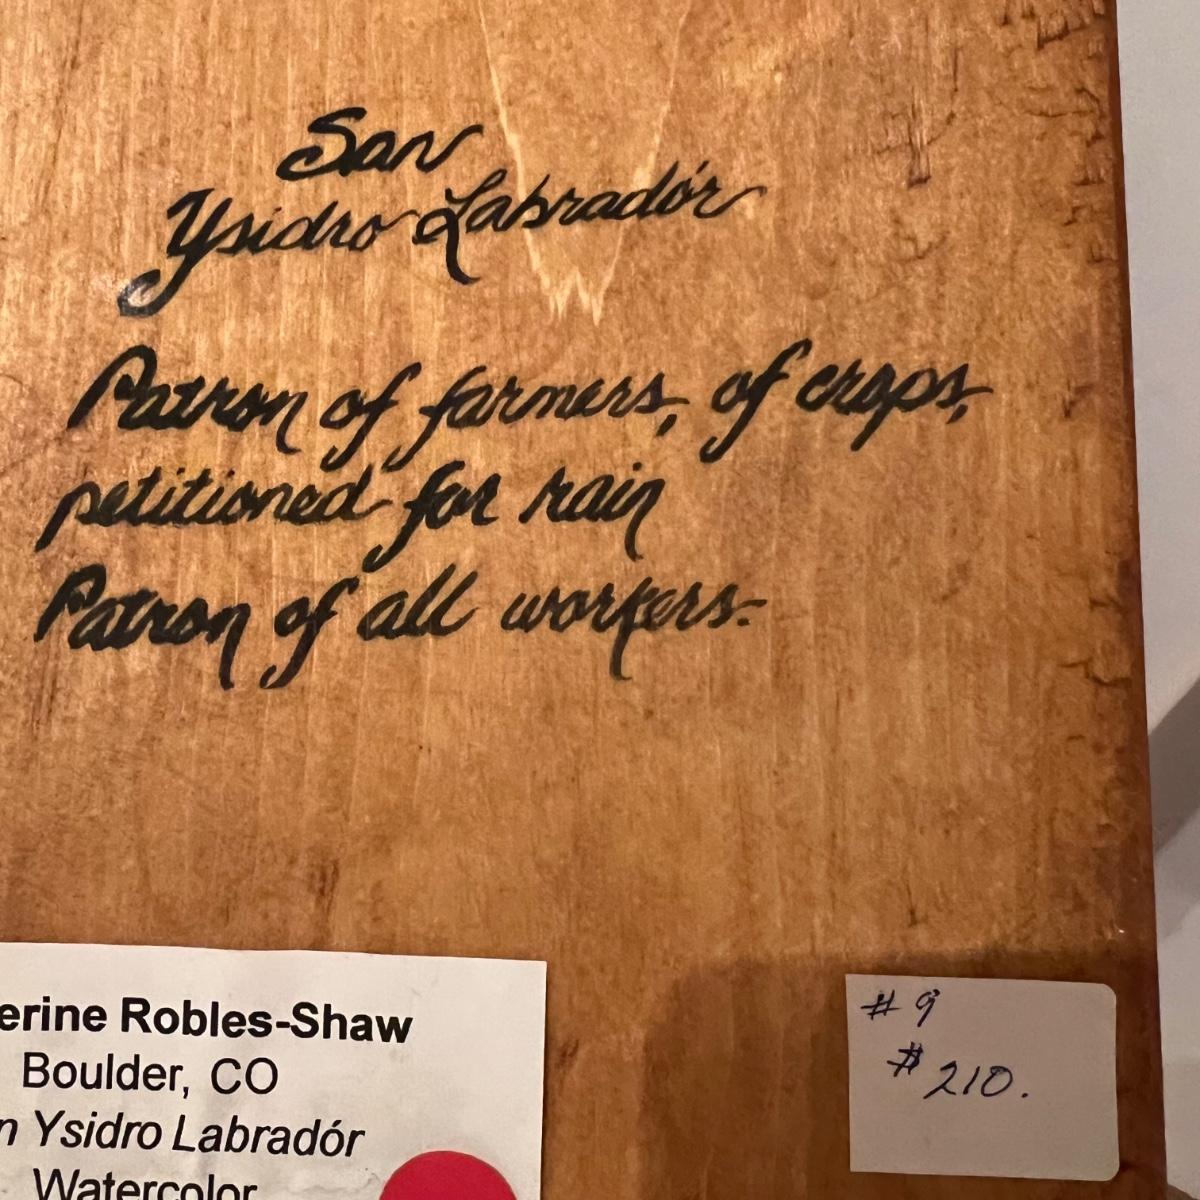 San
Ysidro Labradór
Patron of farmers, of crops,
petitioned for rain
Patron of all workers.
erine Robles-Shaw
Boulder, CO
n Ysidro Labradór
Watercolor
# 9
$ 210.